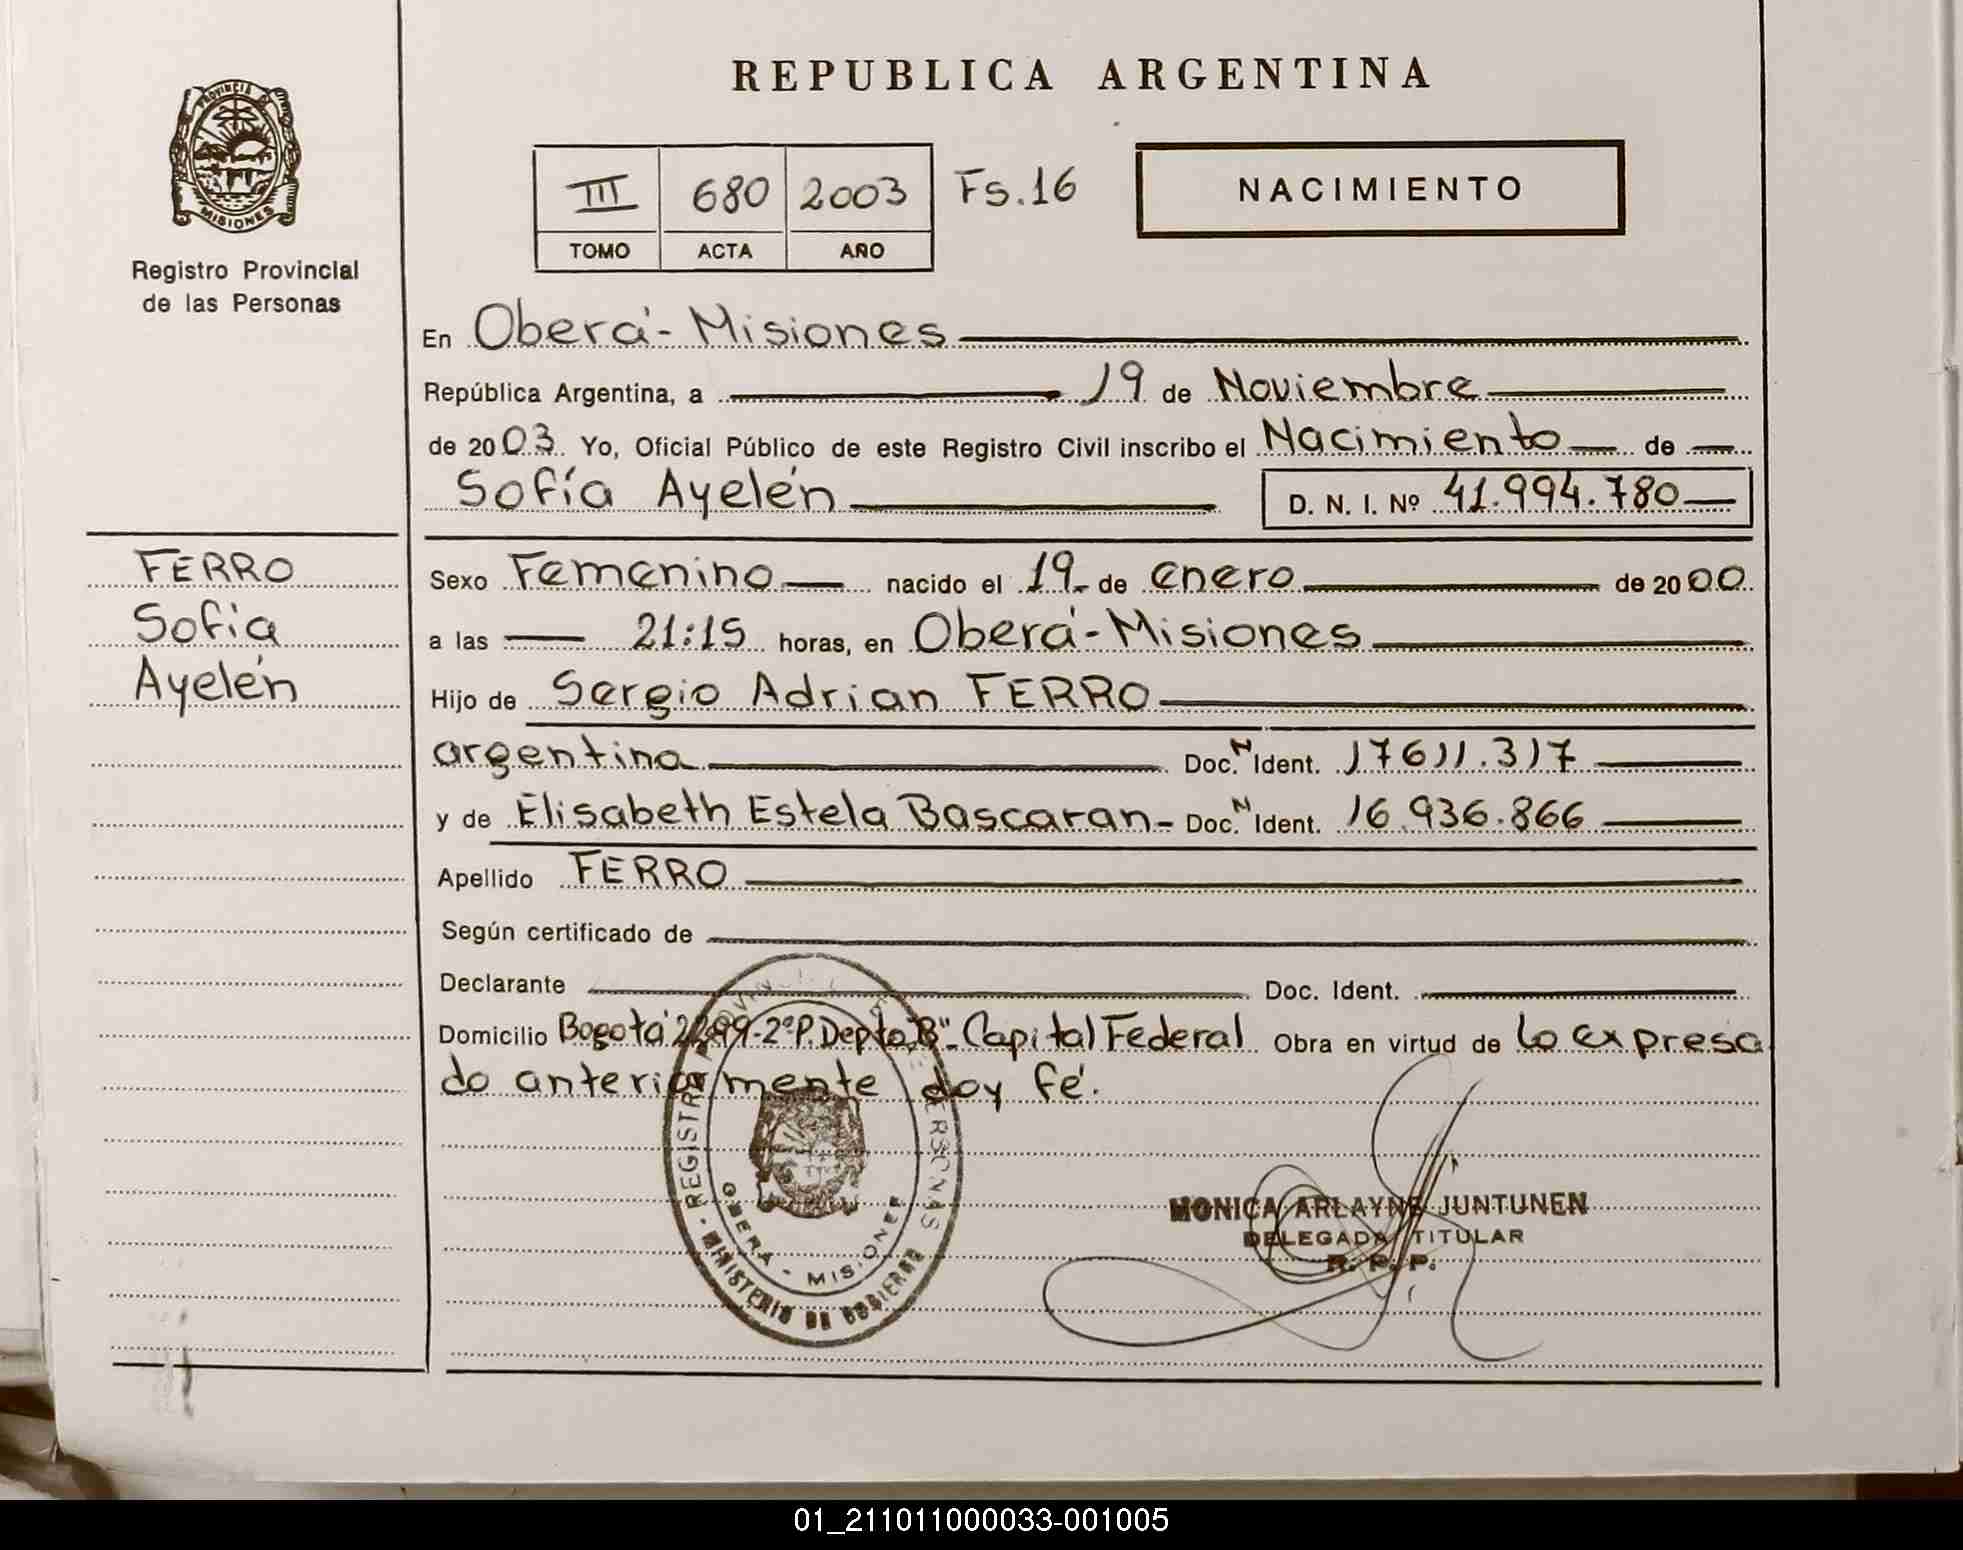 REPUBLICA ARGENTINA
PROVINCIA D
MISIONES
Registro Provincial
de las Personas
III 680 2003 Fs.16
TOMO ACTA AÑO
NACIMIENTO
En Oberá - Misiones
República Argentina, a 19 de Noviembre
de 2003. Yo, Oficial Público de este Registro Civil inscribo el Nacimiento de
Sofía Ayelén D. N. I. Nº 41.994.780
FERRO
Sofía
Ayelén
Sexo Femenino nacido el 19 de enero de 2000
a las 21:15 horas, en Oberá - Misiones
Hijo de Sergio Adrian FERRO
argentina Doc. N Ident. 17611.317
y de Elisabeth Estela Bascaran - Doc. N Ident. 16.936.866
Apellido FERRO
Según certificado de
Declarante Doc. Ident.
Domicilio Bogotá 2299-2º P. Depto "B" - Capital Federal Obra en virtud de lo expresa
do anteriormente doy fé.
REGISTRO PERSONAS
OBERA - MISIONES
MINISTERIO DE GOBIERNO
MONICA ARLAYNE JUNTUNEN
DELEGADA TITULAR
R. P. P.
01_211011000033-001005